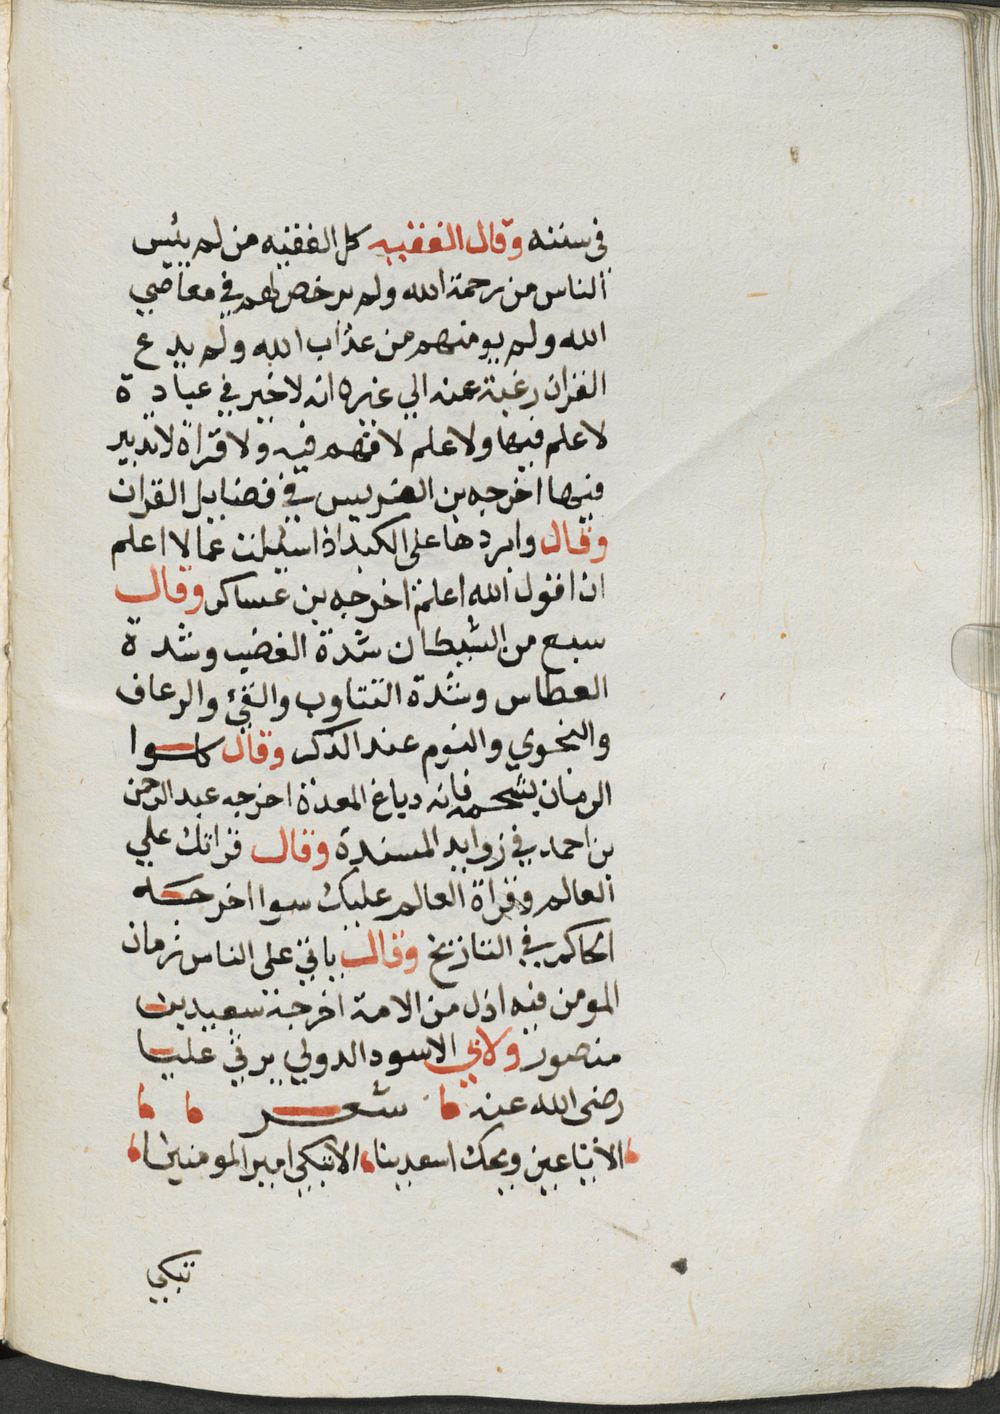 في سننه وقال الفقيه كل الفقيه من لم يئيس
الناس من رحمة الله ولم يرخص لهم في معاصي
الله ولم يومنهم من عذاب الله ولم يدع
القران رغبة عنه الي غيره انه لا خير في عبادة
لا علم فيها ولا علم لا فهم فيه ولا قراة لا تدبير
فيها اخرجه بن الضريس في فضايل القران
وقال وابردها علي الكبد اذا اسيلت عما لا اعلم
ان اقول الله اعلم اخرجه بن عساكر وقال
سبع من الشيطان شدة الغضب وشدة
العطاس وشدة التتاوب والقيء والرعاف
والنجوي والنوم عند الذكر وقال كلوا
الرمان بشحمه فانه دباغ المعدة اخرجه عبد الرحمن
بن احمد في زوايد المسندة وقال قراتك علي
العالم وقراة العالم عليك سوا اخرجه
الحاكم في التاريخ وقال ياتي علي الناس زمان
المومن فيه اذل من الامة اخرجه سعيد بن
منصور ولابي الاسود الدولي يرثي عليا
رضي الله عنه شعر
الا يا عين ويحك اسعدينا الا تبكي امير المومنينا
تبكي